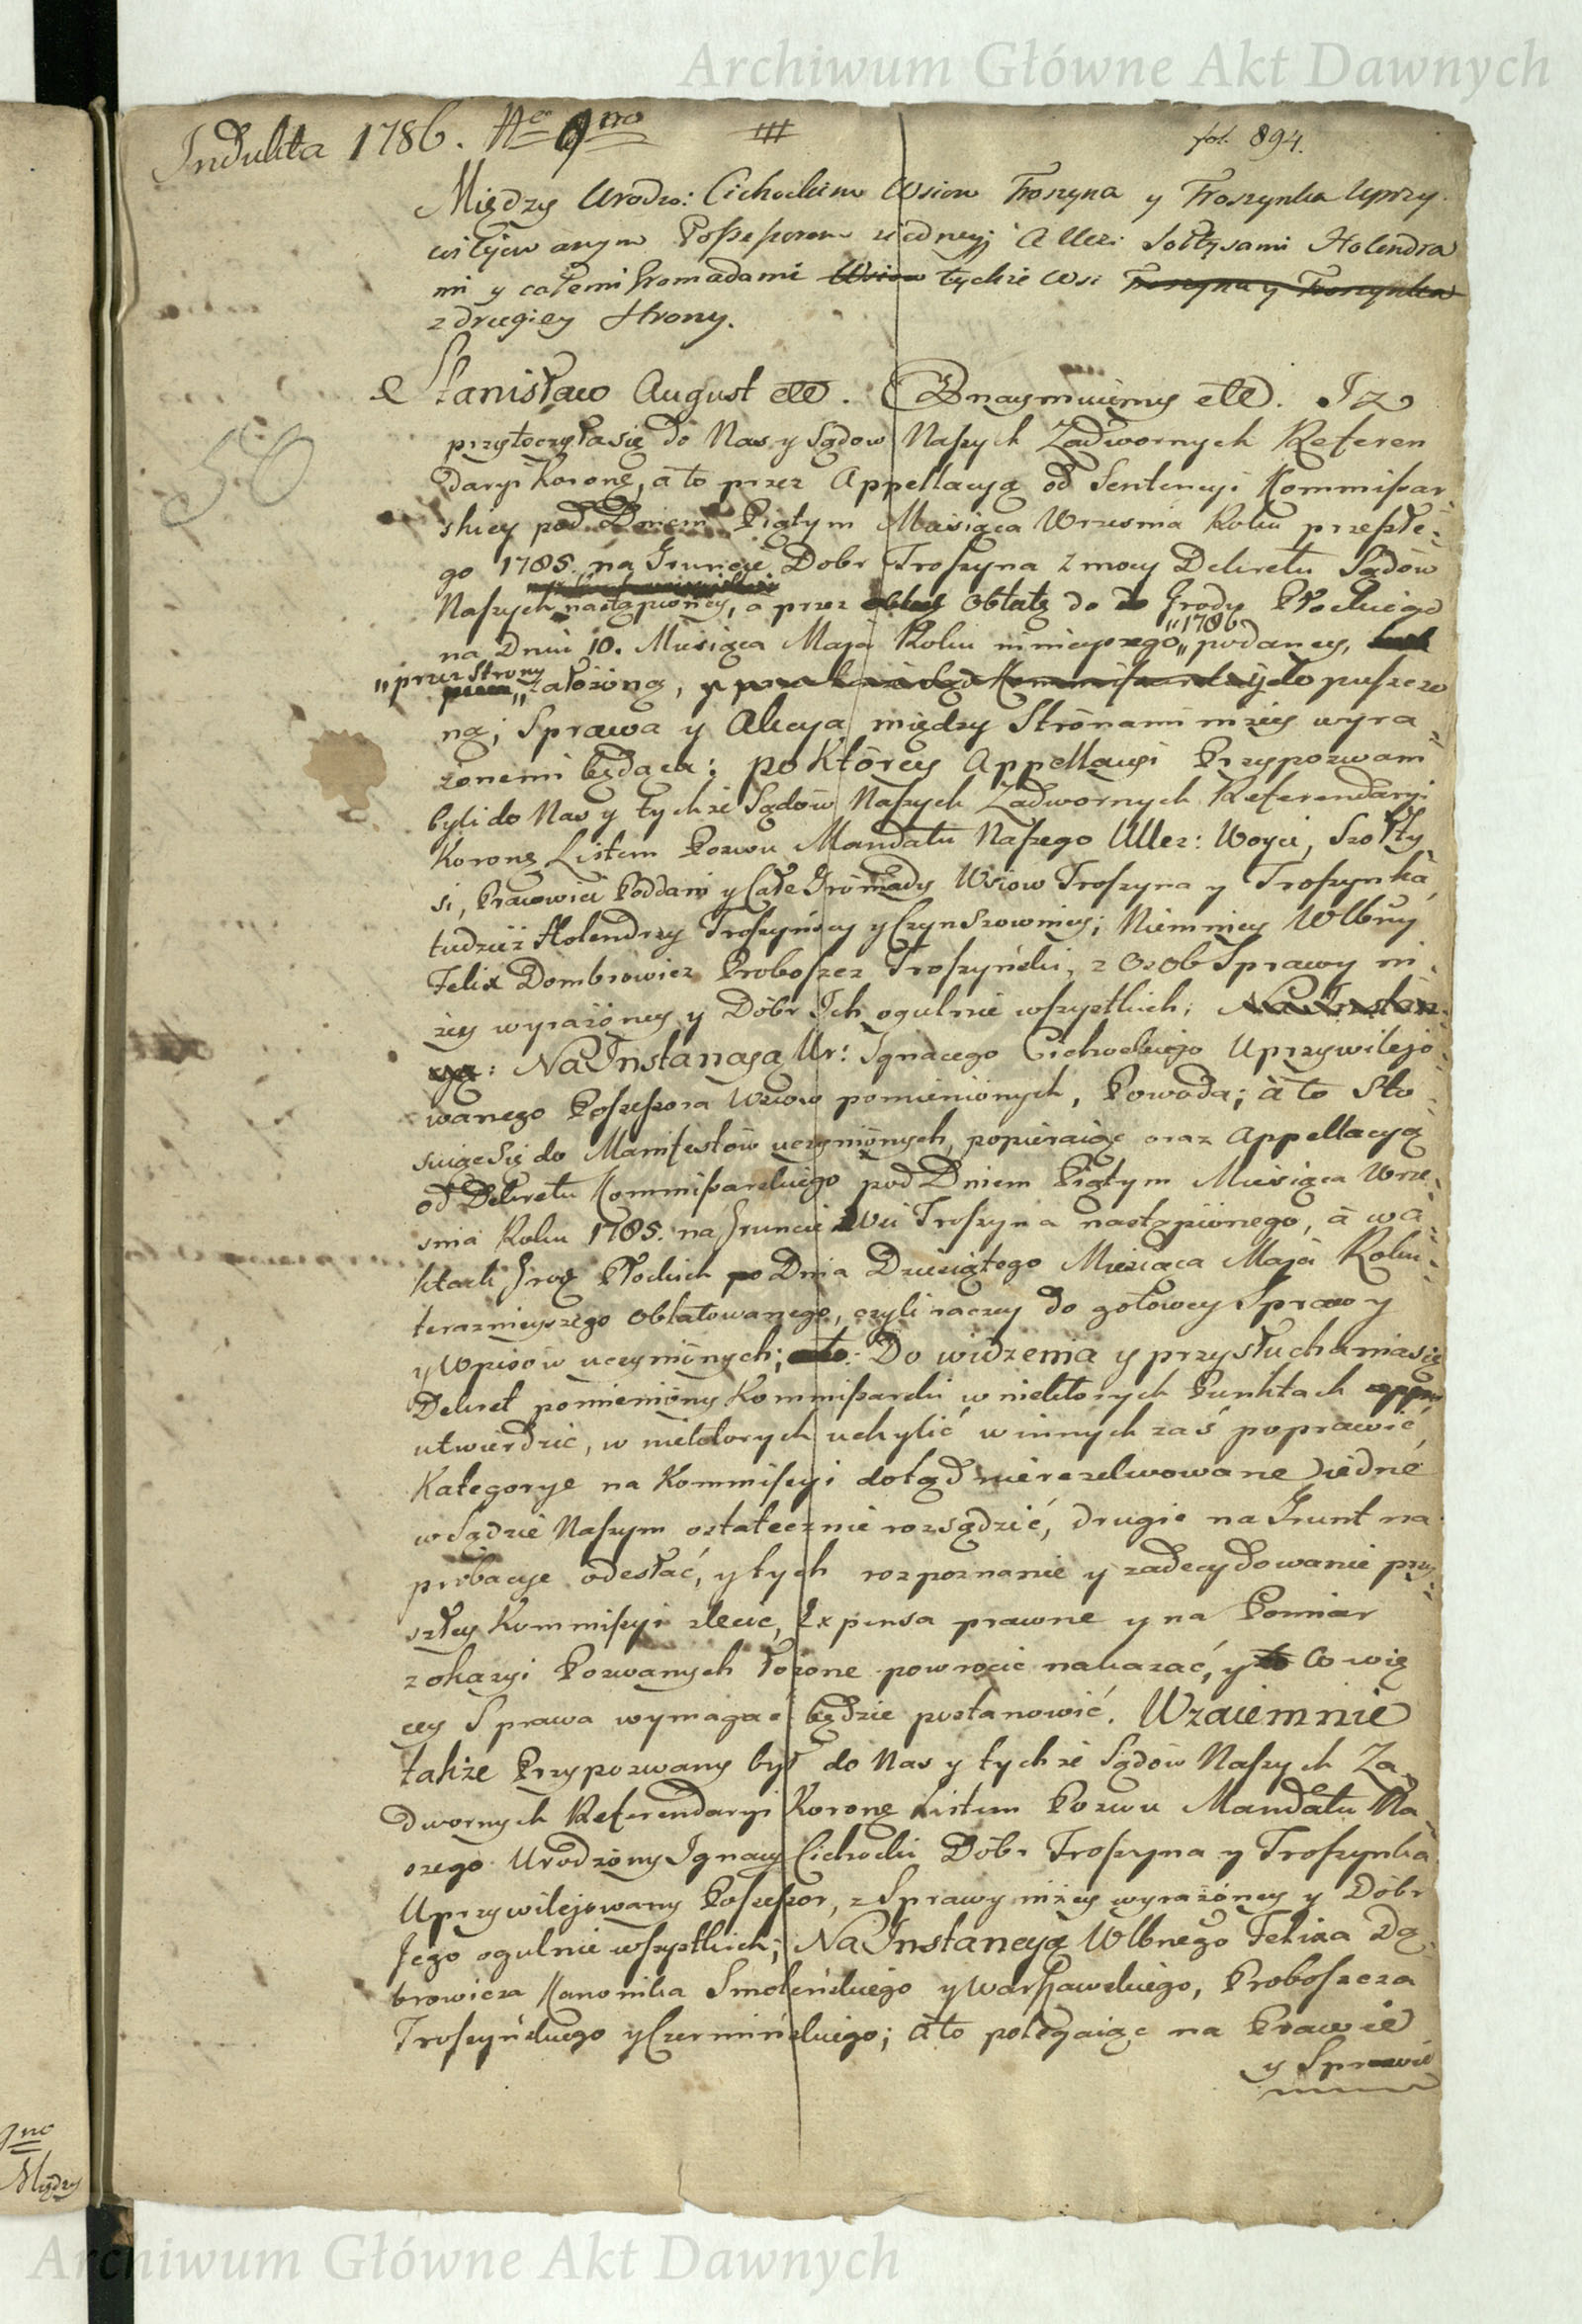 Archiwum Główne Akt Dawnych
Indukta 1786. No 9no
fol. 894.
Między Urodzo: Cichockim Wsiow Troszyna y Troszynka Uprzy
wilejowanym Possessorem z iedney; A Ucz: Sołtysami Holendra
mi y całemi Gromadami Wsiow tychże Wsi Troszyna y Troszynka
z drugiey Strony.
Stanisław August etc. Oznaymuiemy etc. Iż
przytoczyła się do Nas y Sądow Naszych Zadwornych Referen
daryi Koronę, a to przez Appellacyą od Sentencyi Kommissar
skiey pod Dniem Piątym Miesiąca Wrzesnia Roku przeszłe
go 1785. na Gruncie Dobr Troszyna z mocy Dekretu Sądow
Naszych nastąpioney, a przez Oblatę do Grodu Płockiego
na Dniu 10. Miesiąca Maja Roku ninieyszego „1786 podaney,
„przez Strony „założoną, dopuszczo
ną; Sprawa y Akcya między Stronami niżey wyra
żonemi będąca: po Którey Appellacyi Przypozwani
byli do Nas y tychże Sądów Naszych Zadwornych Referendaryi
Koronę Listem Pozwu Mandatu Naszego Ucz: Woyci, Szołty
si, Pracowici Poddani y Całe Gromady Wsiow Troszyna y Troszynka,
tudzież Holendrzy Troszyńscy y Czynszownicy; Niemniey Wlbny
Felix Dombrowicz Proboszcz Troszyński, z Osob Sprawy ni
żey wyrażoney y Dóbr Ich ogulnie wszystkich; Na Instan
cyą: Na Instancyą Ur: Ignacego Cichockiego Uprzywilejo
wanego Possessora Wsiow pomienionych, Powoda; a to Sto
suiąc Się do Manifestów uczynionych, popieraiąc oraz Appellacyą
od Dekretu Kommissarskiego pod Dniem Piątym Miesiąca Wrze
snia Roku 1785. na Gruncie Wsi Troszyna nastąpionego, a w A
ktach Grod Płockich Dnia Dziesiątego Miesiąca Maja Roku
teraznieyszego oblatowanego, czyli raczey do gotowey Sprawy
y Wpisów uczynionych; Do widzenia y przysłuchania się
Dekret pomieniony Kommissarski w niektorych Punktach
utwierdzić, w niektorych uchylić w innych zaś poprawić,
Kategorye na Kommissyi dotąd nierezolwowane iedne
w Sądzie Naszym ostatecznie rozsądzić, drugie na Grunt na
probacye odesłać, y tych rozpoznanie y zadecydowanie przy
szłey Kommissyi zlecić, Expensa prawne y na Pomiar
z okazyi Pozwanych łożone powrocić nakazać, y co wię
cey Sprawa wymagać będzie postanowić. Wzaiemnie
także Przypozwany był do Nas y tychże Sądów Naszych Za
dwornych Referendaryi Koronę Listem Pozwu Mandatu Na
szego Urodzony Ignacy Cichocki Dóbr Troszyna y Troszynka
Uprzywilejowany Possessor, z Sprawy niżey wyrażoney y Dóbr
Jego ogulnie wszystkich; Na Instancyą Wlbnego Felixa Dą
browicza Kanonika Smoleńskiego y Warszawskiego, Proboszcza
Troszyńskiego y Czermińskiego; a to polegaiąc na Prawie
y Sprawie
9no
Między
Archiwum Główne Akt Dawnych